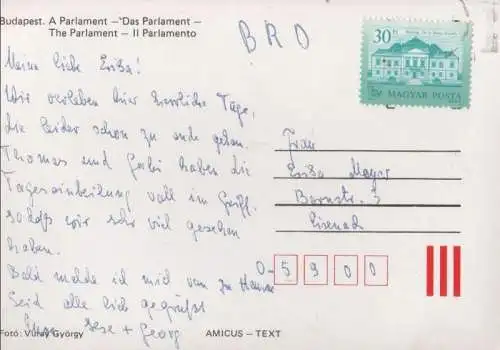 Budapest. A Parlament –"Das Parlament –
The Parlament – Il Parlamento
BRD
30 Ft
MAGYAR POSTA
Meine liebe Erika!
Wir verleben hier herrliche Tage,
die leider schon zu ende gehen.
Thomas und Gabi haben die
Tageseinteilung voll im Griff,
so daß wir sehr viel gesehen
haben.
Bald melde ich mich von zu Hause
Seid alle lieb gegrüßt
Eure + Georg
Frau
Erika Mayer
Bornstr. 3
Eisenach
O-5900
Fotó: Váray György
AMICUS – TEXT